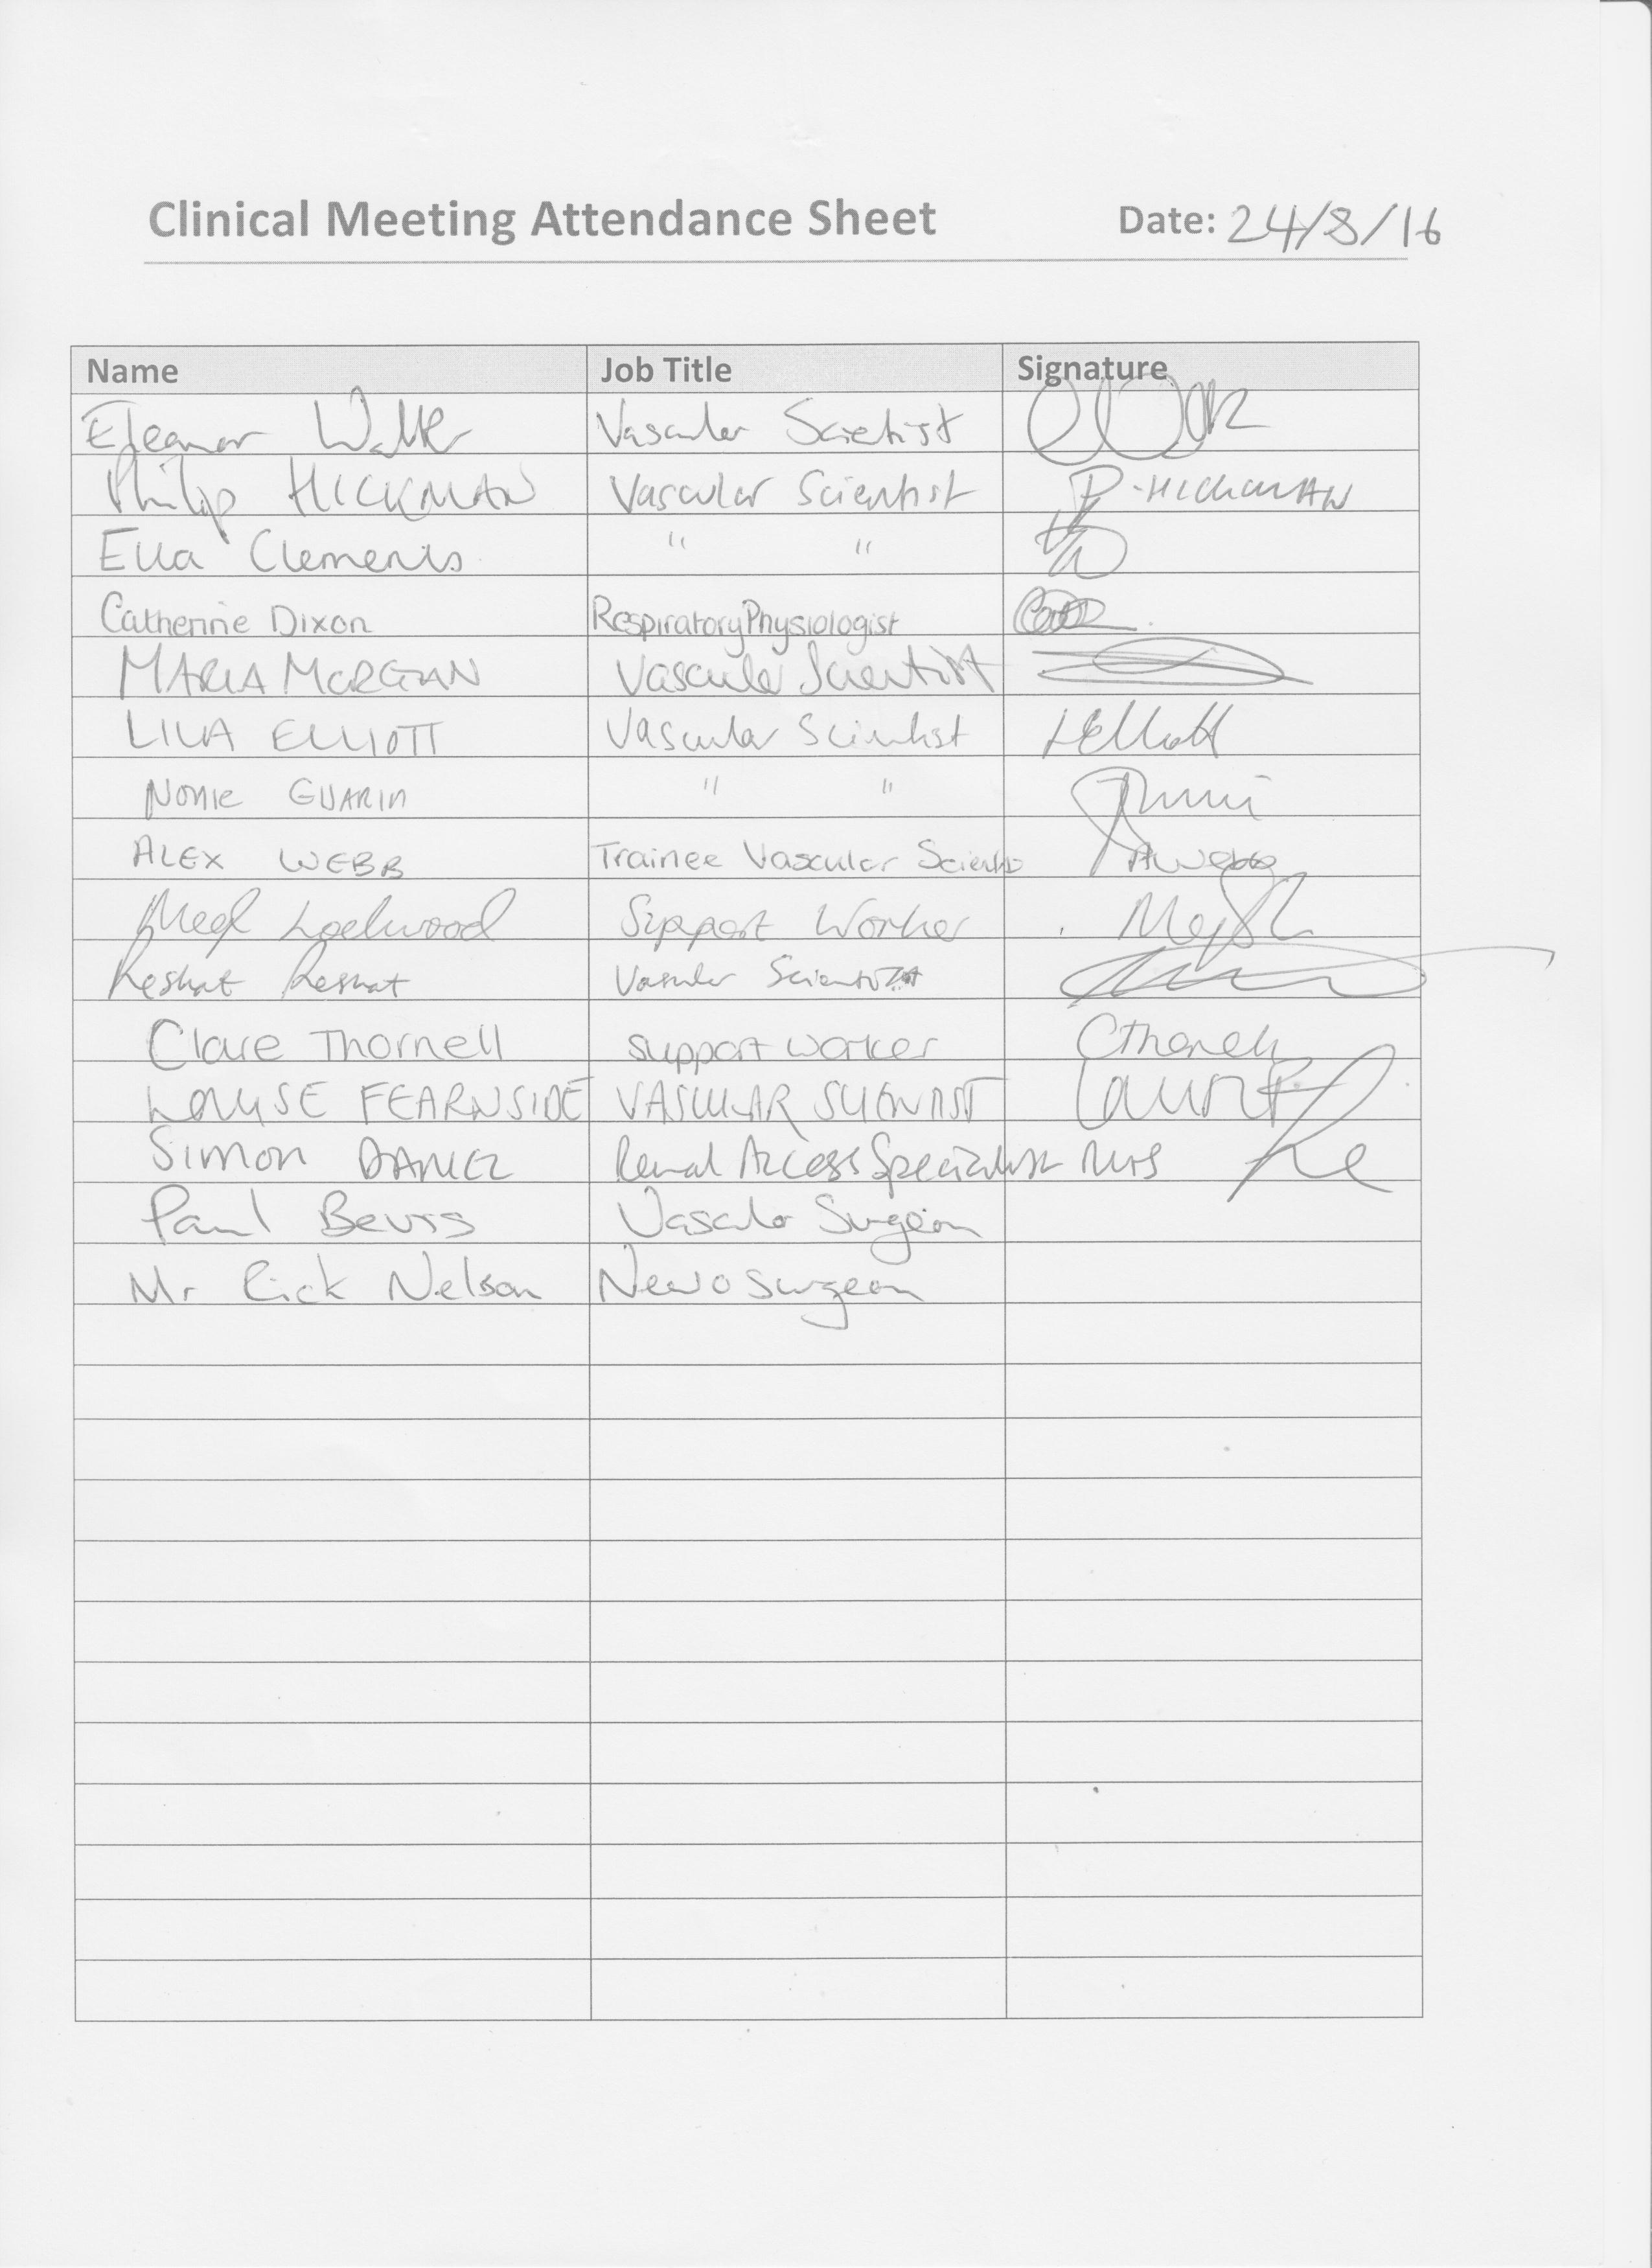 Clinical Meeting Attendance Sheet Date: 24/8/16
Name Job Title Signature
Eleanor Vascular Scietist
Philip HICKMAN Vascular Scientist P. HICKMAN
Ella Clements " "
Catherine Dixon Respiratory Physiologist
MARIA MORGAN Vascular Scientist
LILA ELLIOTT Vascular Scientist LElliott
NONIE GUARIN " "
ALEX WEBB Trainee Vascular Scientist AWebb
Meg Lockwood Support Worker
Reshat Reshat Vascular Scientist
Clare Thornell support worker CThornell
LOUISE FEARNSIDE VASCULAR SCIENTIST
Simon DANIEL Renal Access Specialist
Paul Vascular Surgeon
Mr Rick Nelson Neurosurgeon